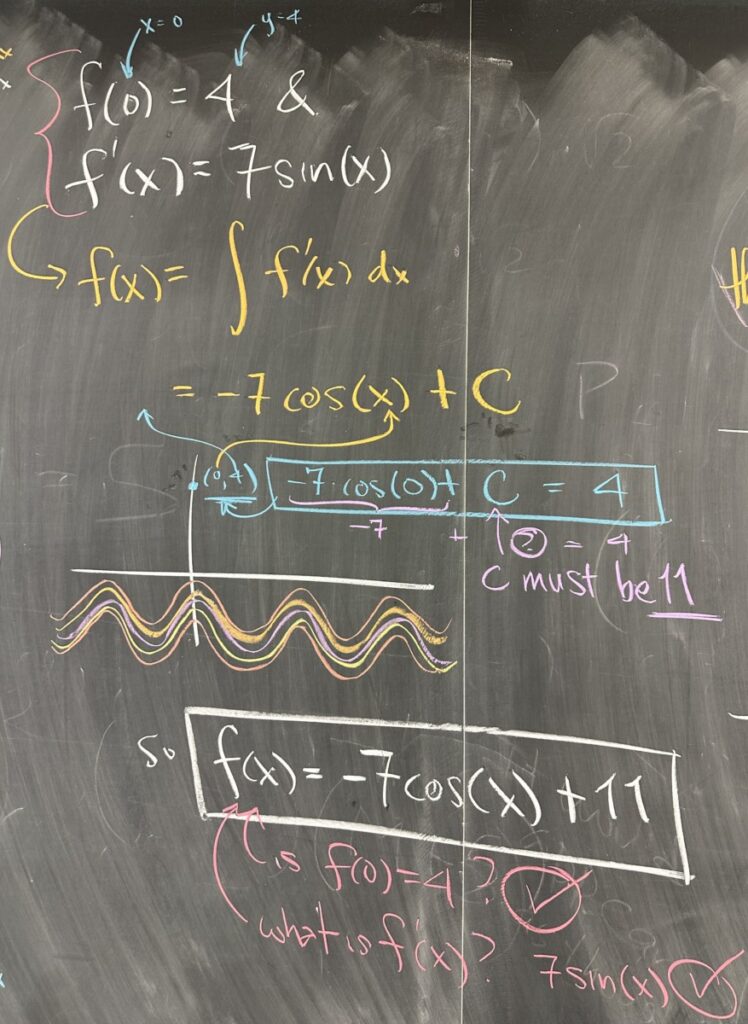 x=0 y=4
f(0) = 4 &
f'(x) = 7sin(x)
f(x) = ∫ f'(x) dx
= -7 cos(x) + C
(0,4) -7·cos(0) + C = 4
-7 + ? = 4
C must be 11
so f(x) = -7cos(x) + 11
is f(0)=4? ✓
what is f'(x)? 7sin(x) ✓